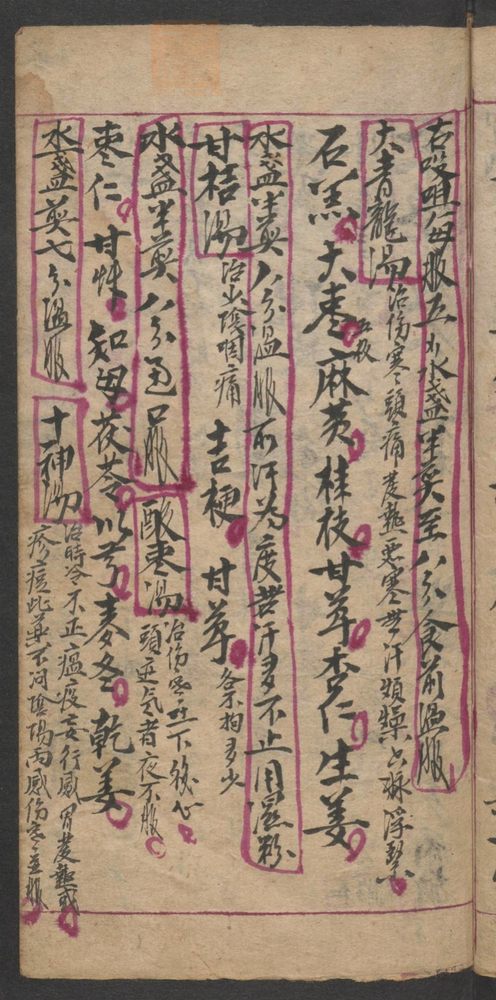 右㕮咀每服五水盞半煎至八分食前溫服
大青龍湯 治伤寒頭痛發热惡寒無汗煩燥六脉浮緊
石羔 大枣 二枚 麻黄 桂枝 甘草 杏仁 生姜
水盞半煎八分溫服取汗为度若汗多不止用溫粉
甘桔湯 治少陰咽痛 吉梗 甘草 各
水盞半煎八分通口服 酸枣湯 治伤寒吐下後心
頭逆気者夜不
枣仁 甘草 知母 茯苓 川芎 麦冬 乾姜
水盞煎七分溫服 十神湯 治時冷不正瘟疫妄行感冒發热或
疹痘此藥不问陰陽両感伤寒並服